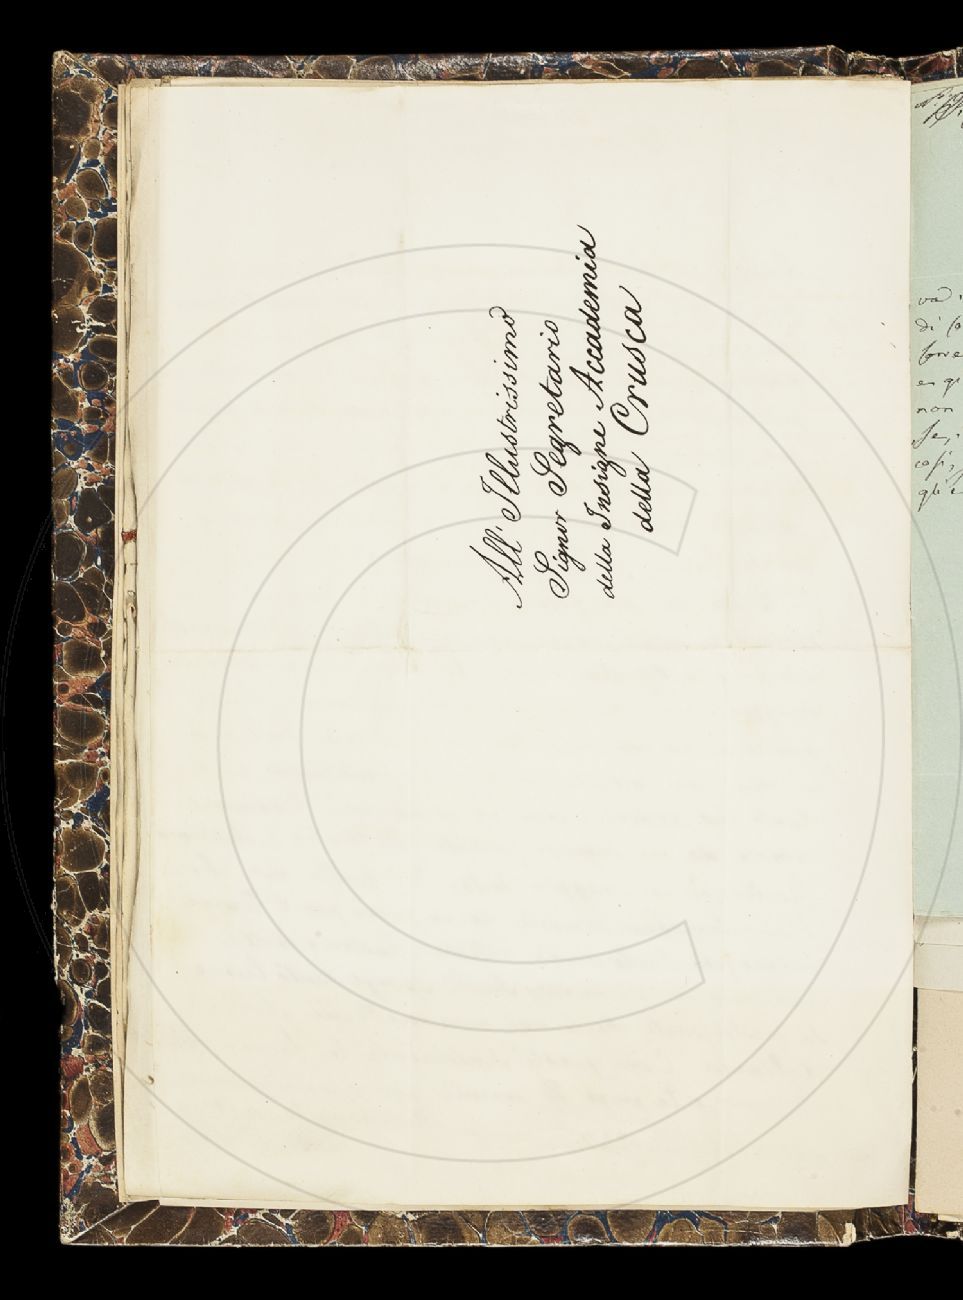 All' Illustrissimo
Signor Segretario
della Insigne Accademia
della Crusca
di
non